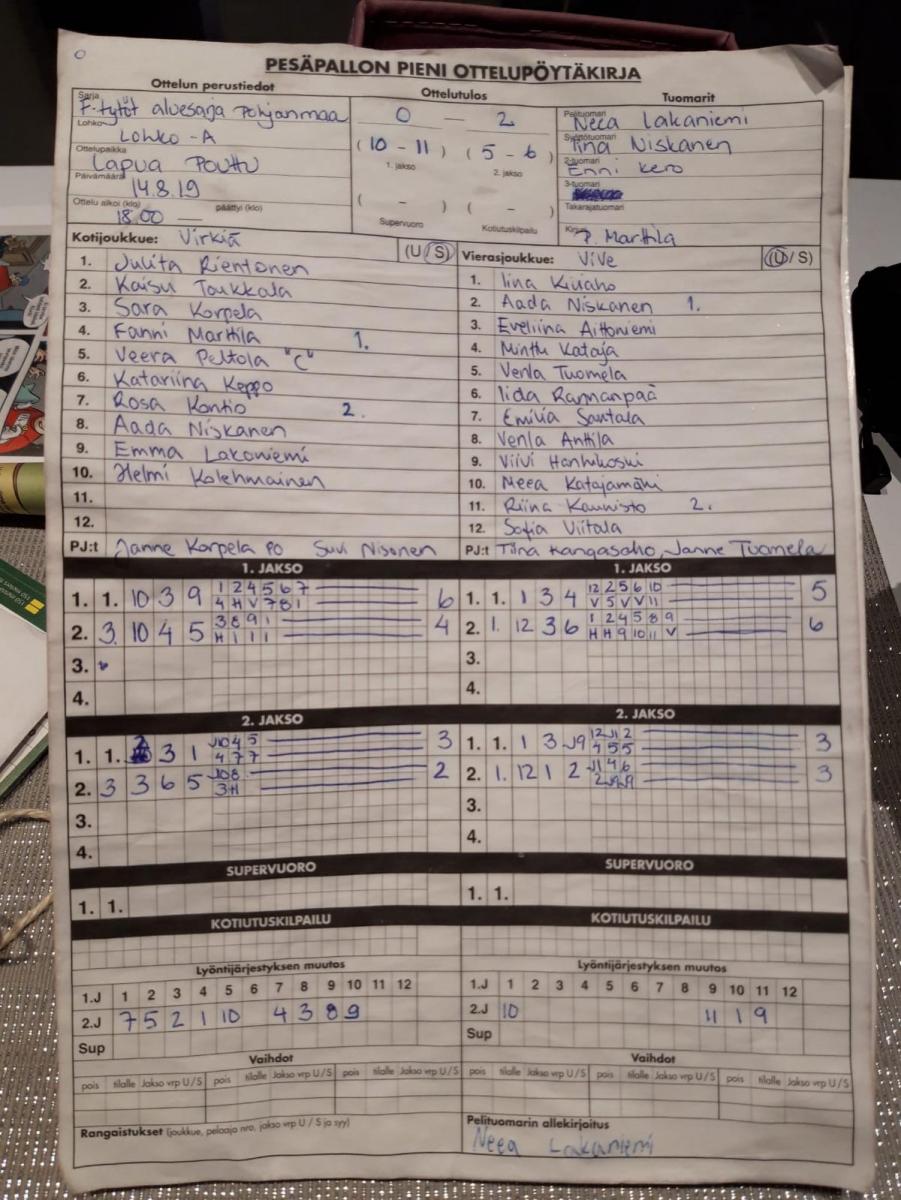 PESÄPALLON PIENI OTTELUPÖYTÄKIRJA
Ottelun perustiedot
Ottelutulos
Tuomarit
Sarja
F-tytöt aluesarja Pohjanmaa
Lohko
Lohko -A
Ottelupaikka
Lapua Pouttu
Päivämäärä
14.8.19
Ottelu alkoi (klo) päättyi (klo)
18.00 —
0 — 2
( 10 - 11 ) ( 5 - 6 )
1. jakso 2. jakso
( - ) ( - )
Supervuoro Kotiutuskilpailu
Pelituomari
Neea Lakaniemi
Syöttötuomari
Tiina Niskanen
2-tuomari
Enni Kero
3-tuomari
Takarajatuomari
Kirjuri
P. Marttila
Kotijoukkue: Virkiä (U/S)
1. Julita Rientonen
2. Kaisu Taukkala
3. Sara Korpela
4. Fanni Marttila 1.
5. Veera Peltola "C"
6. Katariina Keppo
7. Rosa Kontio 2.
8. Aada Niskanen
9. Emma Lakaniemi
10. Helmi Kolehmainen
11.
12.
PJ:t Janne Korpela PO Suvi Nisonen
Vierasjoukkue: ViVe (U/S)
1. Iina Kiviaho
2. Aada Niskanen 1.
3. Eveliina Aittoniemi
4. Minttu Kataja
5. Venla Tuomela
6. Iida Rannanpää
7. Emilia Santala
8. Venla Anttila
9. Viivi Hanhikoski
10. Meea Katajamäki
11. Riina Kaunisto 2.
12. Sofia Viitala
PJ:t Tiina Kangasaho, Janne Tuomela
1. JAKSO
1. 1. 10 3 9 1 2 4 5 6 7 6
4 H V 7 8 1
2. 3. 10 4 5 3 8 9 1 4
H 1 1 1
3.
4.
1. JAKSO
1. 1. 1 3 4 12 2 5 6 10 5
V 5 V V 11
2. 1. 12 3 6 1 2 4 5 8 9 6
H H 9 10 11 V
3.
4.
2. JAKSO
1. 1. 2 3 1 J10 4 5 3
4 7 7
2. 3 3 6 5 J10 8 2
3 H
3.
4.
2. JAKSO
1. 1. 1 3 J9 12 J1 2 3
4 5 5
2. 1. 12 1 2 J1 4 6 3
2 J9 J9
3.
4.
SUPERVUORO
1. 1.
SUPERVUORO
1. 1.
KOTIUTUSKILPAILU
KOTIUTUSKILPAILU
Lyöntijärjestyksen muutos
1.J 1 2 3 4 5 6 7 8 9 10 11 12
2.J 7 5 2 1 10 4 3 8 9
Sup
Lyöntijärjestyksen muutos
1.J 1 2 3 4 5 6 7 8 9 10 11 12
2.J 10 11 1 9
Sup
Vaihdot
pois tilalle Jakso vrp U/S pois tilalle Jakso vrp U/S pois tilalle Jakso vrp U/S
Vaihdot
pois tilalle Jakso vrp U/S pois tilalle Jakso vrp U/S pois tilalle Jakso vrp U/S
Rangaistukset (joukkue, pelaaja nro, jakso vrp U / S ja syy)
Pelituomarin allekirjoitus
Neea Lakaniemi